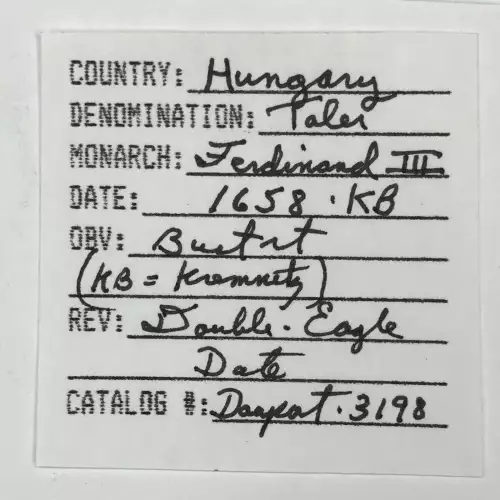 COUNTRY: Hungary
DENOMINATION: Taler
MONARCH: Ferdinand III
DATE: 1658 · KB
OBV: Bust rt
(KB = Kremnitz)
REV: Double · Eagle
Date
CATALOG #: Davport · 3198